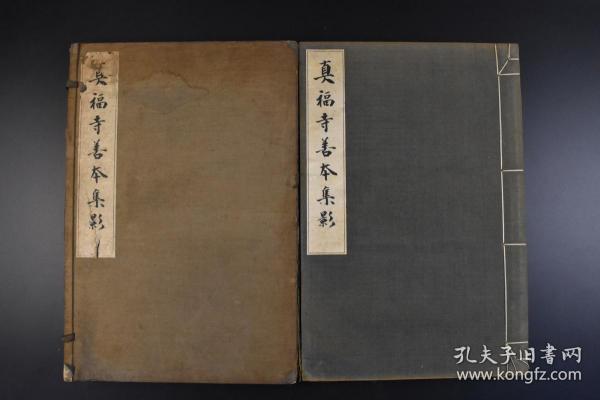 真福寺善本集影
真福寺善本集影
孔夫子旧书网
www.kongfz.com